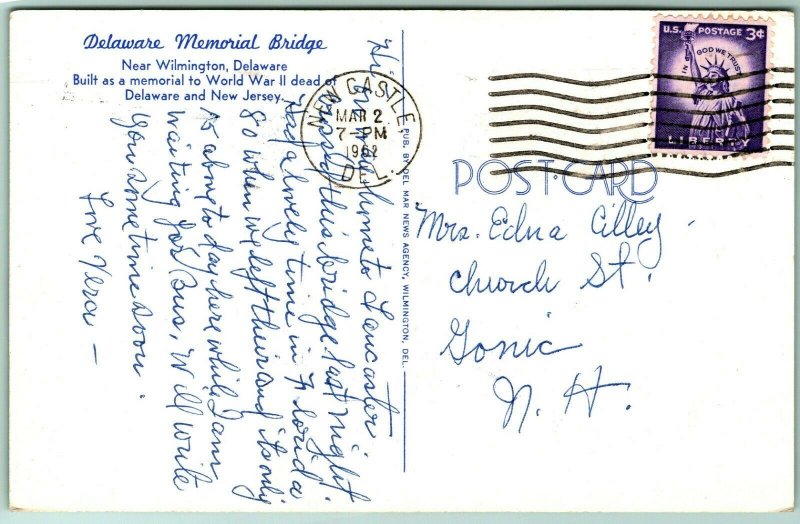 Delaware Memorial Bridge
Near Wilmington, Delaware
Built as a memorial to World War II dead of
Delaware and New Jersey.
NEW CASTLE,
MAR 2
7-PM
1962
DEL.
U.S. POSTAGE 3¢
IN GOD WE TRUST
LIBERTY
POST CARD
PUB. BY DEL MAR NEWS AGENCY, WILMINGTON, DEL.
Mrs. Edna Cilley
Church St.
Gonic
N. H.
"Hi" home to Lancaster
this bridge last night.
Had a lovely time in Florida
80 when we left their and its only
to above to day here while I am
waiting for Bus. Will write
you sometime soon.
Love Vera —